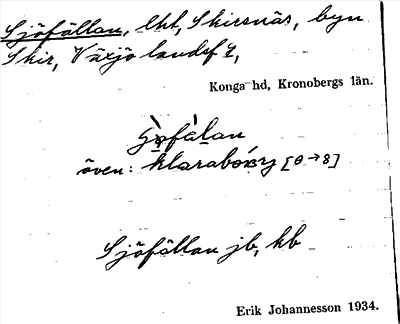 Sjöfällan, lht, Skirsnäs, byn
Skir, Växjö landsf
Konga hd, Kronobergs län.
även: klarabory [θ → 8]
Sjöfällan jb, kb
Erik Johannesson 1934.